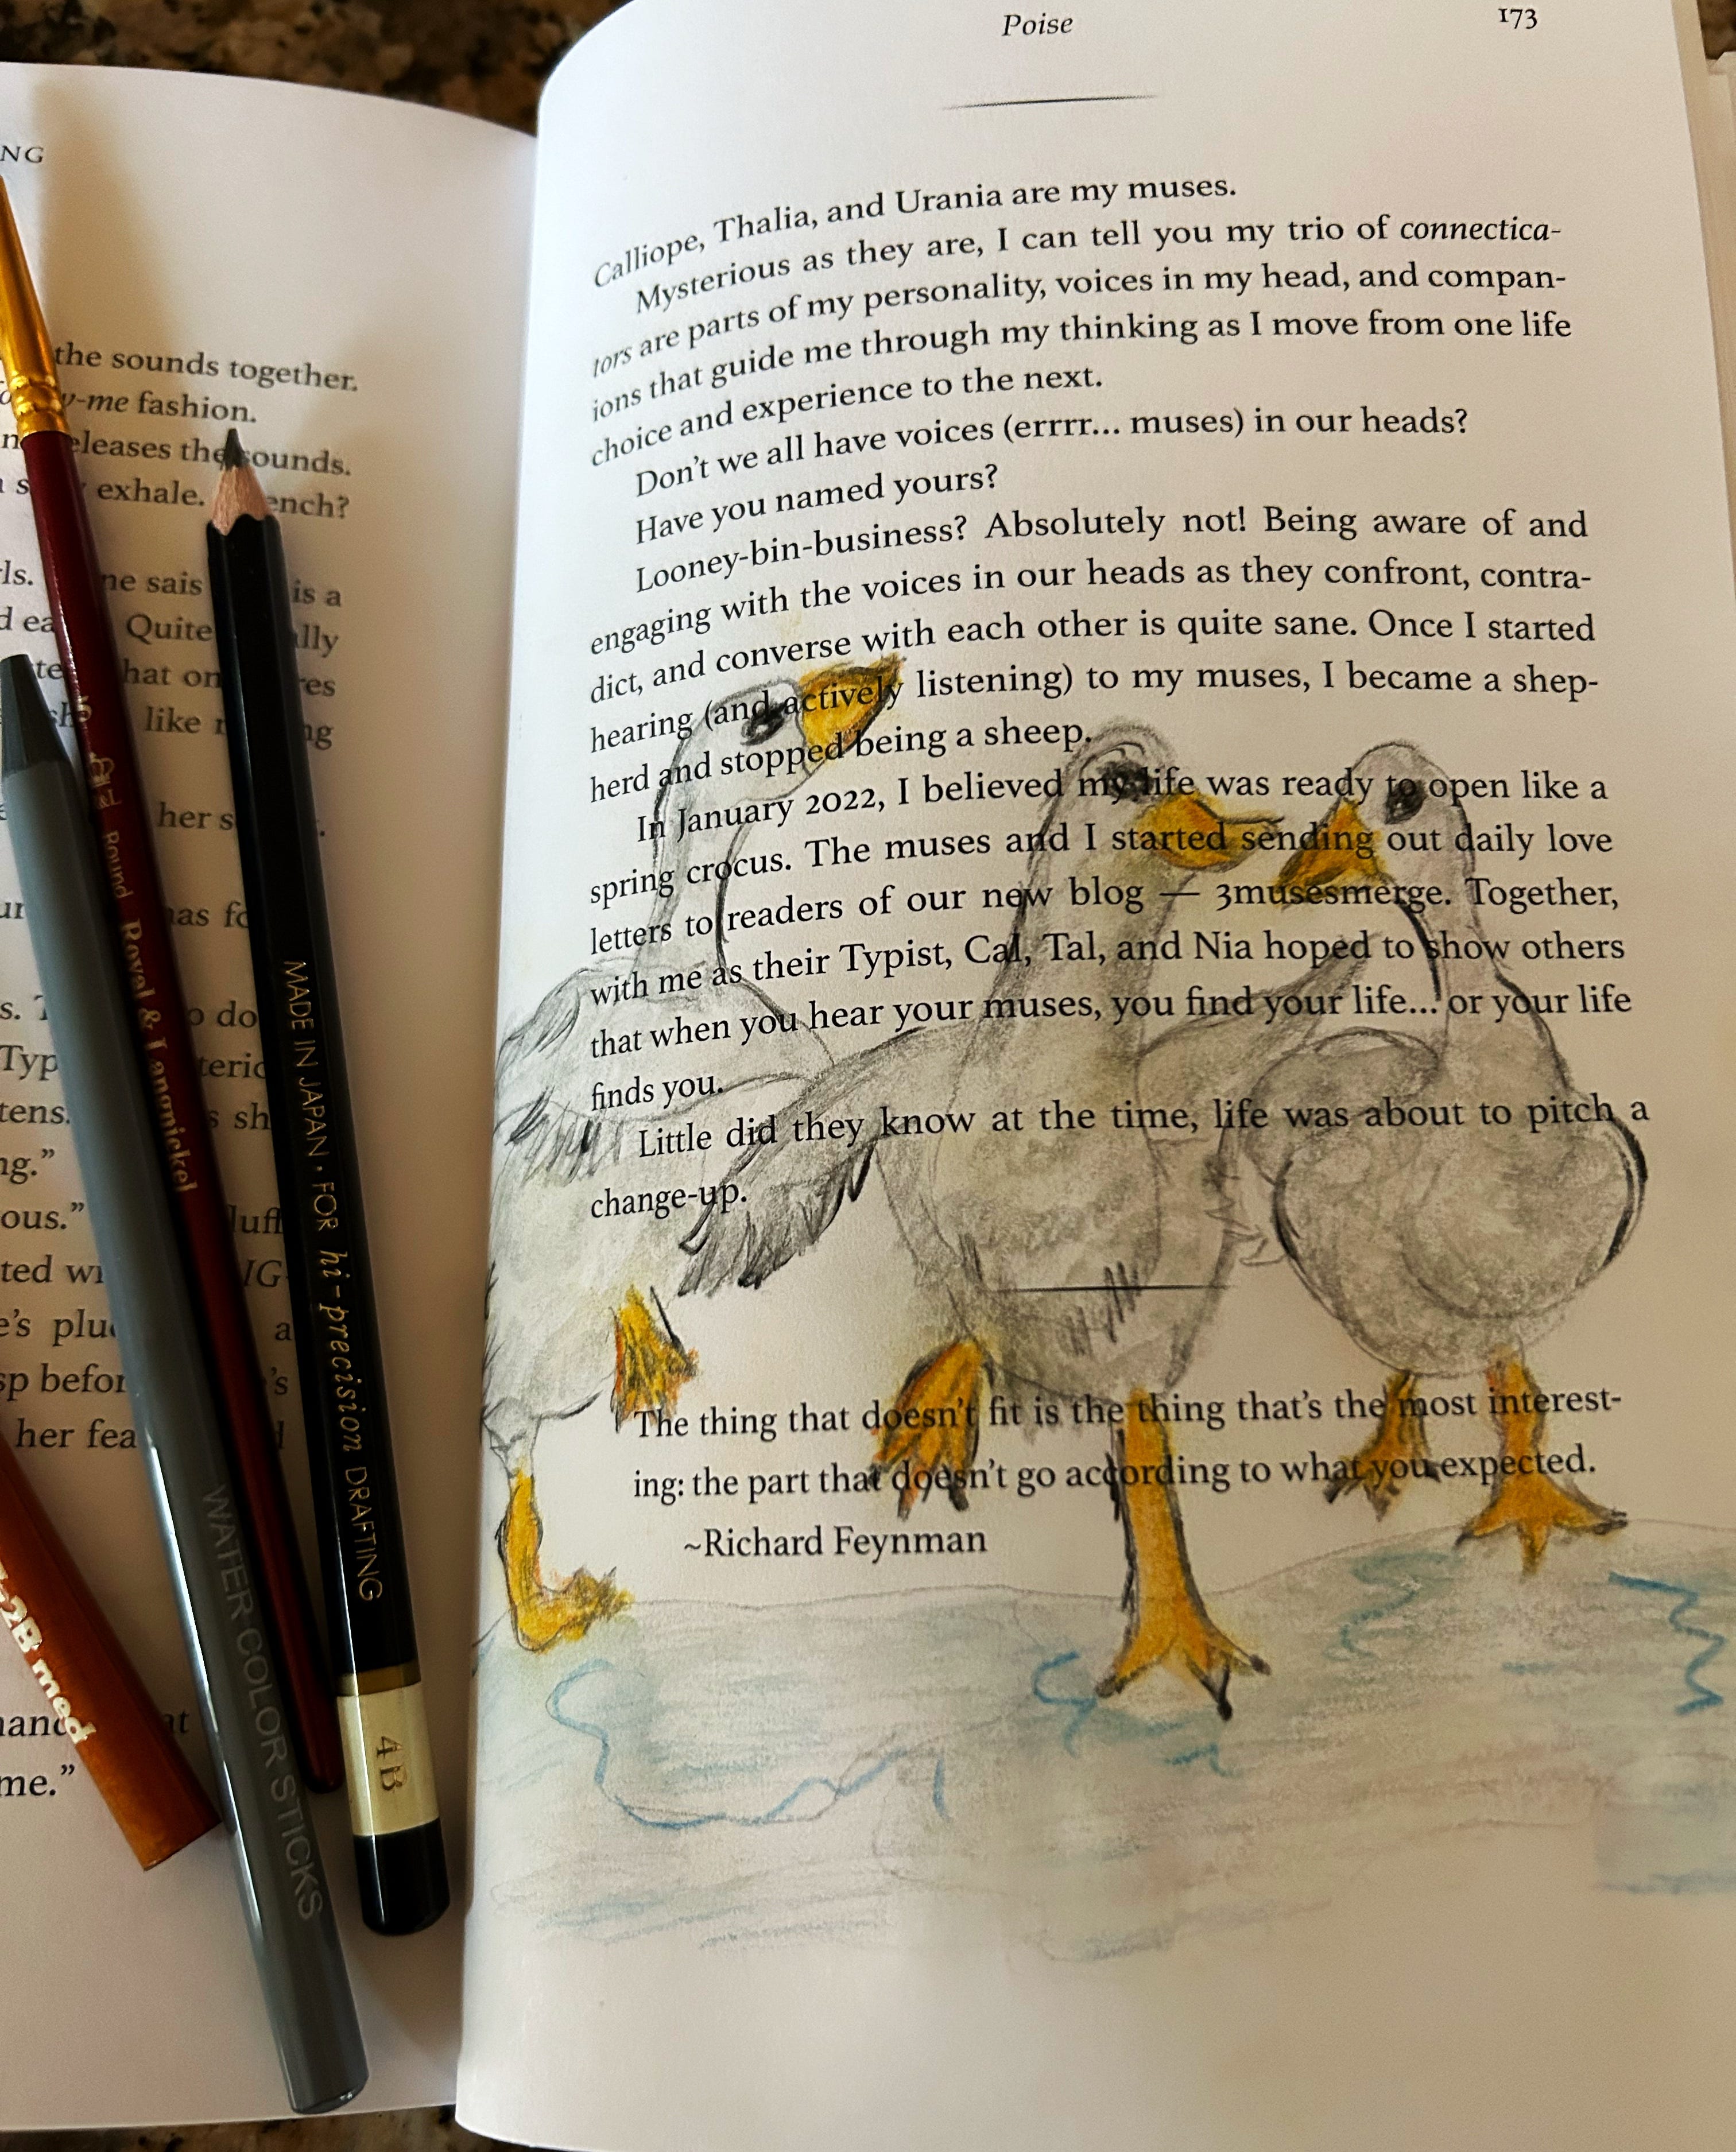 NG
the sounds together.
-me fashion.
eleases the sounds.
exhale. ench?
ls. ne sais is a
d ea Quite lly
hat on res
like ng
her s
as fo
s. T o do
Typ teric
tens. s sh
ng.”
ous.” luff
ted wi IG-
e’s plu a
sp befor ’s
her fea d
hand at
me.”
Royal & Langnickel
MADE IN JAPAN · FOR hi-precision DRAFTING
4B
WATER COLOR STICKS
2B med
Poise 173
Calliope, Thalia, and Urania are my muses.
Mysterious as they are, I can tell you my trio of connectica-
tors are parts of my personality, voices in my head, and compan-
ions that guide me through my thinking as I move from one life
choice and experience to the next.
Don’t we all have voices (errrr... muses) in our heads?
Have you named yours?
Looney-bin-business? Absolutely not! Being aware of and
engaging with the voices in our heads as they confront, contra-
dict, and converse with each other is quite sane. Once I started
hearing (and actively listening) to my muses, I became a shep-
herd and stopped being a sheep.
In January 2022, I believed my life was ready to open like a
spring crocus. The muses and I started sending out daily love
letters to readers of our new blog — 3musesmerge. Together,
with me as their Typist, Cal, Tal, and Nia hoped to show others
that when you hear your muses, you find your life... or your life
finds you.
Little did they know at the time, life was about to pitch a
change-up.
The thing that doesn’t fit is the thing that’s the most interest-
ing: the part that doesn’t go according to what you expected.
~Richard Feynman